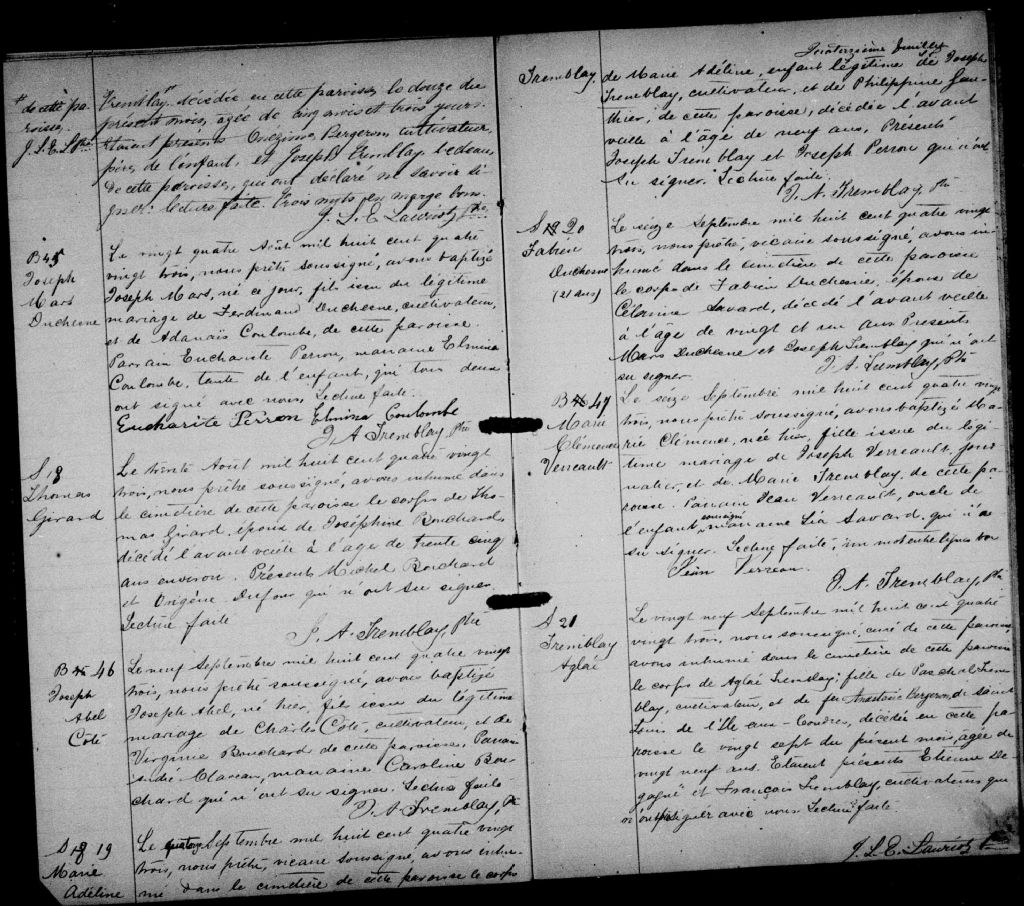 de cette pa-
roisse.
J. L. E. L. Ptre
Tremblay, décédée en cette paroisse le douze du
présent mois, agée de cinq mois et trois jours.
Etaient présents Onézime Bergeron, cultivateur,
père de l'enfant, et Joseph Tremblay, bedeau,
de cette paroisse, qui ont déclaré ne savoir si-
gner. Lecture faite. Trois mots en marge bons.
J. L. E. Lauriot, Ptre
B 45
Joseph
Mars
Duchesne
Le vingt quatre Août mil huit cent quatre
vingt trois, nous prêtre soussigné, avons baptizé
Joseph Mars, né ce jour, fils issu du légitime
mariage de Ferdinand Duchesne, cultivateur,
et de Adanaïs Coulombe, de cette paroisse.
Parrain Eucharite Perron, marraine Elmina
Coulombe, tante de l'enfant, qui tous deux
ont signé avec nous. Lecture faite.
Eucharite Perron Elmina Coulombe
J. A. Tremblay Ptre
S 18
Thomas
Girard
Le trente Aout mil huit cent quatre vingt
trois, nous prêtre soussigné, avons inhumé dans
le cimetière de cette paroisse le corps de Tho-
mas Girard, époux de Joséphine Bouchard,
décédé l'avant veille à l'age de trente cinq
ans environ. Présents Michel Bouchard
et Origène Dufour qui n'ont su signer.
Lecture faite
J. A. Tremblay, Ptre
B 46
Joseph
Abel
Côté
Le neuf Septembre mil huit cent quatre vingt
trois, nous prêtre soussigné, avons baptizé
Joseph Abel, né hier, fils issu du légitime
mariage de Charles Côté, cultivateur, et de
Virginie Bouchard de cette paroisse. Parrain
André Claveau, marraine Caroline Bou-
chard qui n'ont su signer. Lecture faite
J. A. Tremblay, Ptre
S 19
Marie
Adéline
Le quatorze Septembre mil huit cent quatre vingt
trois, nous prêtre, vicaire soussigné, avons inhu-
mé dans le cimetière de cette paroisse le corps
Quatorzième feuillet
Tremblay
de Marie Adéline, enfant légitime de Joseph
Tremblay, cultivateur, et de Philippine Gau-
thier, de cette paroisse, décédée l'avant
veille à l'âge de neuf ans. Présents
Joseph Tremblay et Joseph Perron qui n'ont
su signer. Lecture faite.
J. A. Tremblay, Ptre
S 20
Fabien
Duchesne
(21 ans)
Le seize Septembre mil huit cent quatre vingt
trois, nous prêtre, vicaire soussigné, avons in-
humé dans le cimetière de cette paroisse
le corps de Fabien Duchesne, époux de
Célanire Savard, décédé l'avant veille
à l'âge de vingt et un ans Présents
Mars Duchesne et Joseph Tremblay qui n'ont
su signer
J. A. Tremblay, Ptre
B 47
Marie
Clémence
Verreault
Le seize Septembre mil huit cent quatre vingt
trois, nous prêtre soussigné, avons baptizé Ma-
rie Clémence, née hier, fille issue du légi-
time mariage de Joseph Verreault, jour-
nalier, et de Marie Tremblay de cette pa-
roisse. Parrain Jean Verreault, oncle de
l'enfant soussigné marraine Léa Savard qui n'a
su signer. Lecture faite, un mot entre lignes bon
Jean Verreau
J. A. Tremblay, Ptre
S 21
Tremblay
Aglaé
Le vingt neuf Septembre mil huit cent quatre
vingt trois, nous soussigné, curé de cette paroisse,
avons inhumé dans le cimetière de cette paroisse
le corps de Aglaé Tremblay, fille de Paschal Trem-
blay, cultivateur, et de feu Anastasie Bergeron, de Saint
Louis de l'Ile aux-Coudres, décédée en cette pa-
roisse le vingt sept du présent mois, agée de
vingt neuf ans. Etaient présents Etienne De-
gagné et François Tremblay, cultivateurs qui
n'ont pu signer avec nous Lecture faite.
J. L. E. Lauriot